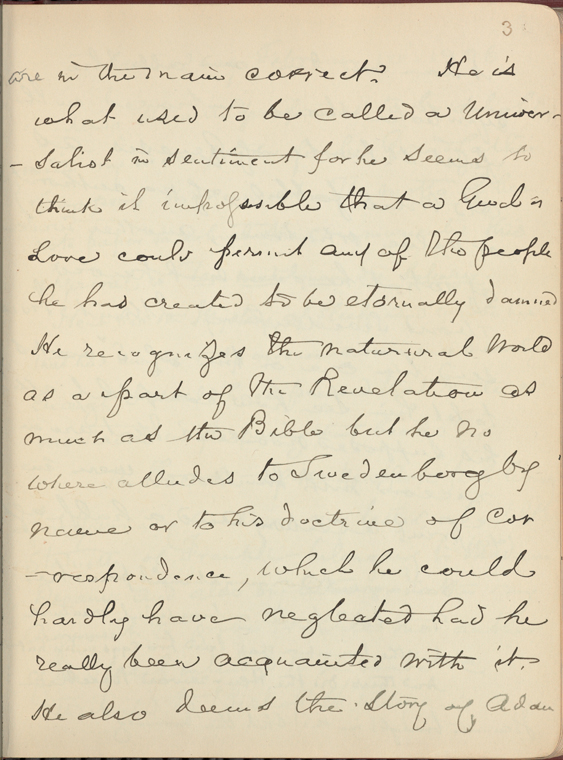 3
are in the main correct. He is
what used to be called a Univer-
-salist in sentiment for he seems to
think it impossible that a God of
Love could permit any of the people
he has created to be eternally damned
He recognizes the natural World
as a part of the Revelation as
much as the Bible but he no
where alludes to Swedenborg by
name or to his doctrine of Cor
-respondence, which he could
hardly have neglected had he
really been acquainted with it.
He also deems the Story of Adam